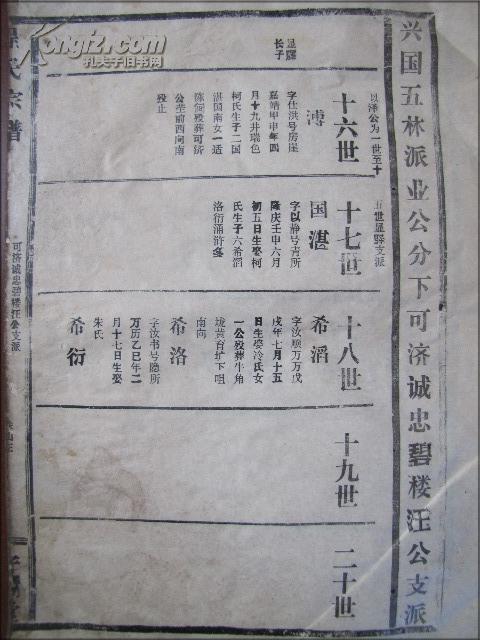 兴国五林派业公分下可济诚忠碧楼汪公支派
以泽公为一世至十
五世显驿支派
十六世
十七世
十八世
十九世
二十世
显驿
长子
溥
字仕洪号房崖
嘉靖甲申年四
月十九井瑞色
柯氏生子二国
湛国南女一适
陈侹殁葬可济
公茔前西向南
殁止
国湛
字以静号青所
隆庆壬申六月
初五日生娶柯
氏生子六希滔
洛衍涌浒
希滔
字汝顺万万戊
戌年七月十五
日生娶冷氏女
一公殁葬牛角
垅黄育圹下咀
南向
希洛
字汝书号隐所
万历乙巳年二
月十七日生娶
朱氏
希衍
氏宗谱
可济诚忠碧楼汪公支派
Kongfz.com
孔夫子旧书网